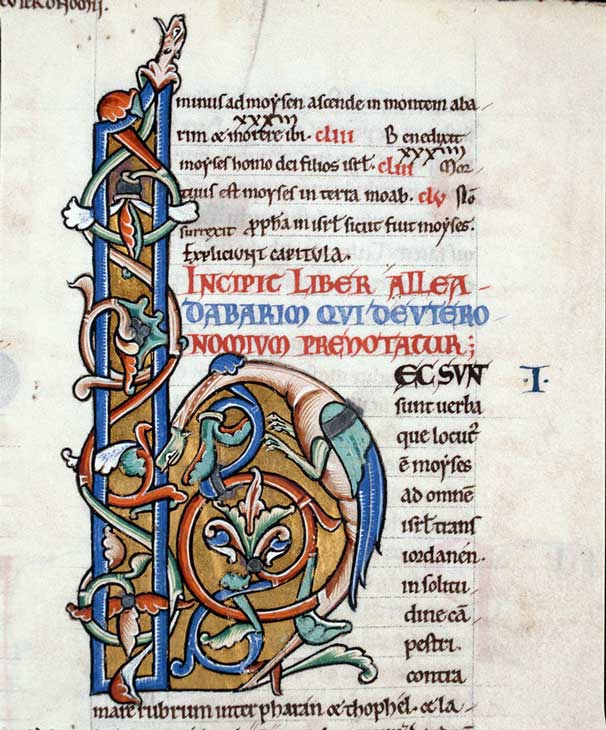 minus ad moysen ascende in montem aba
rim & morere ibi. cliii Benedixit
xxxiii
moyses homo dei filios isrl. cliii Mor
xxxiiii
tuus est moyses in terra moab. clv Nō
surrexit ppha in isrl sicut fuit moyses.
Expliciunt capitula.
INCIPIT LIBER ALLEA
DABARIM QUI DEUTERO
NOMIUM PRENOTATUR;
HEC SUNT I.
sunt uerba
que locut᾽
ē moyses
ad omnē
isrl trans
iordanēn.
in solitu
dine cā
pestri.
contra
mare rubrum inter pharan & thophel. & la